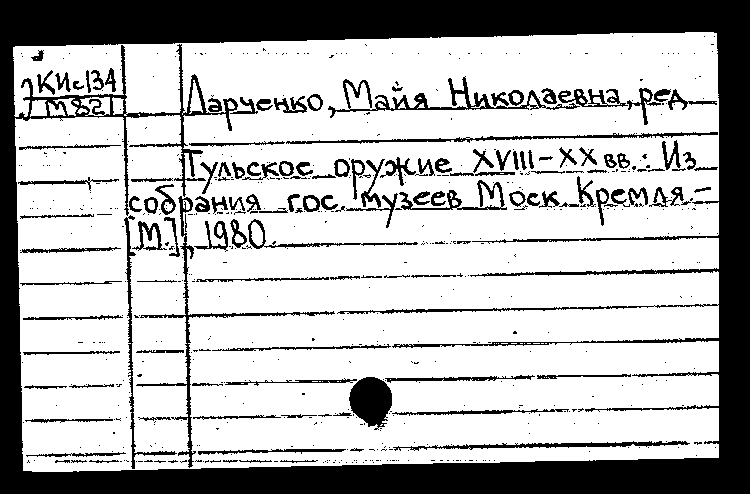 КИс134
М821
Ларченко, Майя Николаевна, ред
Тульское оружие XVIII-XX вв.: Из
собрания гос. музеев Моск. Кремля.-
[М.], 1980.